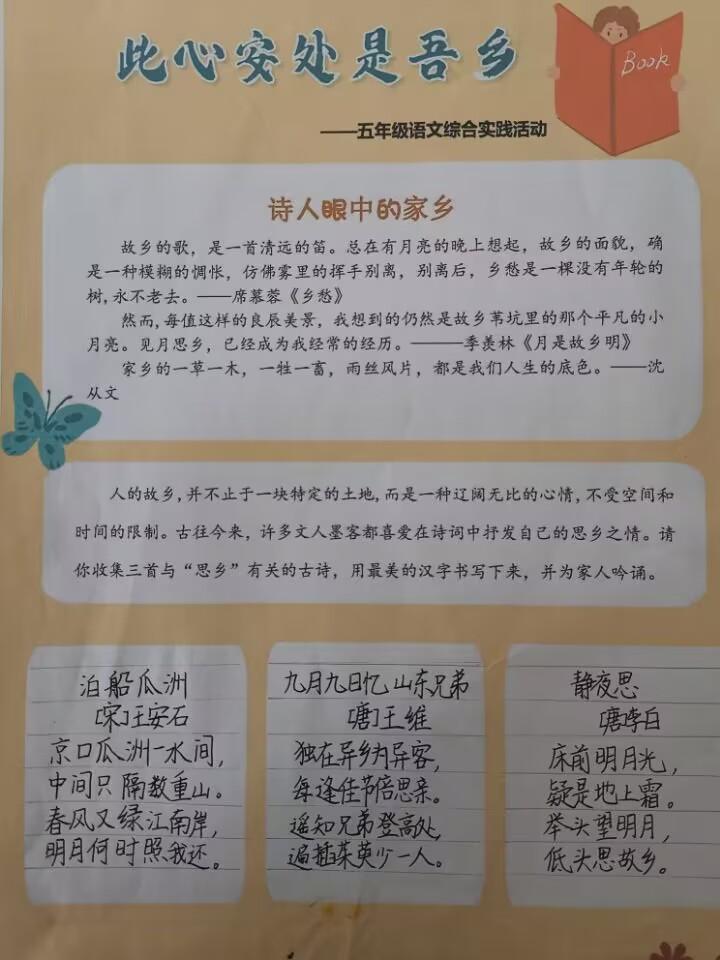 此心安处是吾乡
Book
——五年级语文综合实践活动
诗人眼中的家乡
故乡的歌，是一首清远的笛。总在有月亮的晚上想起，故乡的面貌，确
是一种模糊的惆怅，仿佛雾里的挥手别离，别离后，乡愁是一棵没有年轮的
树,永不老去。——席慕蓉《乡愁》
然而,每值这样的良辰美景，我想到的仍然是故乡苇坑里的那个平凡的小
月亮。见月思乡，已经成为我经常的经历。———季羡林《月是故乡明》
家乡的一草一木，一牲一畜，雨丝风片，都是我们人生的底色。——沈
从文
人的故乡,并不止于一块特定的土地,而是一种辽阔无比的心情,不受空间和
时间的限制。古往今来，许多文人墨客都喜爱在诗词中抒发自己的思乡之情。请
你收集三首与“思乡”有关的古诗，用最美的汉字书写下来，并为家人吟诵。
泊船瓜洲
[宋]王安石
京口瓜洲一水间，
中间只隔数重山。
春风又绿江南岸，
明月何时照我还。
九月九日忆山东兄弟
[唐]王维
独在异乡为异客，
每逢佳节倍思亲。
遥知兄弟登高处，
遍插茱萸少一人。
静夜思
[唐]李白
床前明月光，
疑是地上霜。
举头望明月，
低头思故乡。